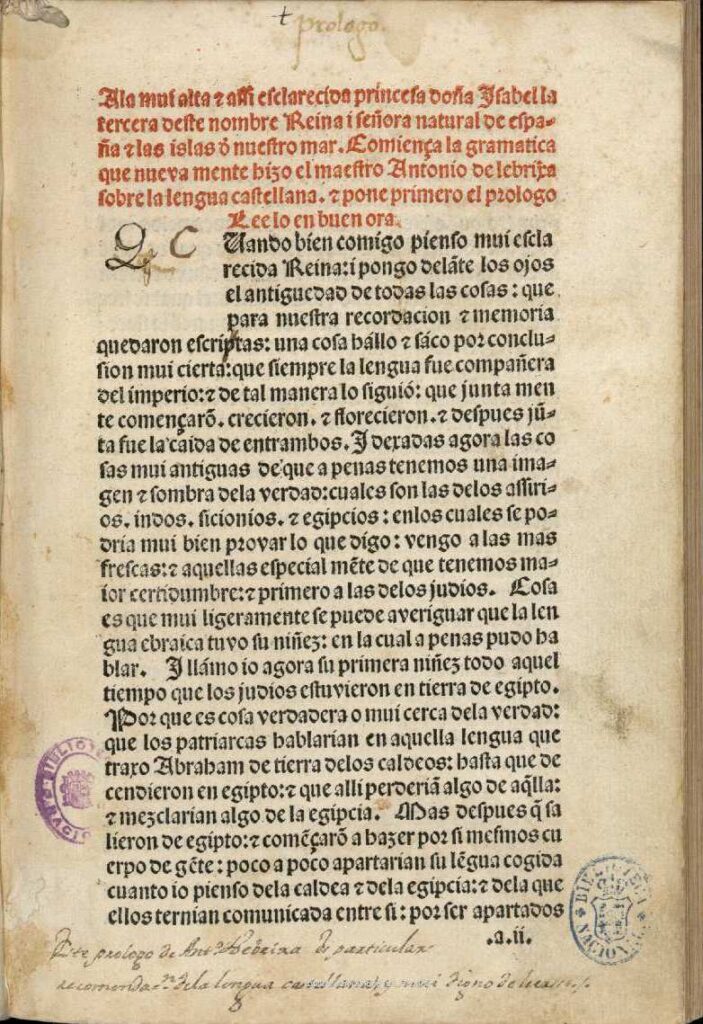 prologo.
A la mui alta ⁊ assi esclarecida princesa doña Isabel la
tercera deste nombre Reina i señora natural de espa-
ña ⁊ las islas ð nuestro mar. Comiença la gramatica
que nueva mente hizo el maestro Antonio de lebrixa
sobre la lengua castellana. ⁊ pone primero el prologo
Lee lo en buen ora.
C
Uando bien comigo pienso mui escla
recida Reina: i pongo delãte los ojos
el antiguedad de todas las cosas: que
para nuestra recordacion ⁊ memoria
quedaron escriptas: una cosa hállo ⁊ sáco por conclu-
sion mui cierta: que siempre la lengua fue compañera
del imperio: ⁊ de tal manera lo siguió: que junta men
te començarõ. crecieron. ⁊ florecieron. ⁊ despues jũ-
ta fue la caida de entrambos. I dexadas agora las co
sas mui antiguas de que a penas tenemos una ima-
gen ⁊ sombra dela verdad: cuales son las delos assiri-
os. indos. sicionios. ⁊ egipcios: enlos cuales se po-
dria mui bien provar lo que digo: vengo a las mas
frescas: ⁊ aquellas especial mẽte de que tenemos ma-
ior certidumbre: ⁊ primero a las delos judios. Cosa
es que mui ligeramente se puede averiguar que la len
gua ebraica tuvo su niñez: en la cual a penas pudo ha
blar. I llámo io agora su primera niñez todo aquel
tiempo que los judios estuvieron en tierra de egipto.
Por que es cosa verdadera o mui cerca dela verdad:
que los patriarcas hablarian en aquella lengua que
traxo Abraham de tierra delos caldeos: hasta que de
cendieron en egipto: ⁊ que alli perderiã algo de aq̃lla:
⁊ mezclarian algo de la egipcia. Mas despues q̃ sa
lieron de egipto: ⁊ comẽçarõ a hazer por si mesmos cu
erpo de gẽte: poco a poco apartarian su lẽgua cogida
cuanto io pienso dela caldea ⁊ dela egipcia: ⁊ dela que
ellos ternian comunicada entre si: por ser apartados
.a.ii.
Este prologo de Antº Nebrixa de particular
recomendaⁿ de la lengua castellana y mui digno de leerse